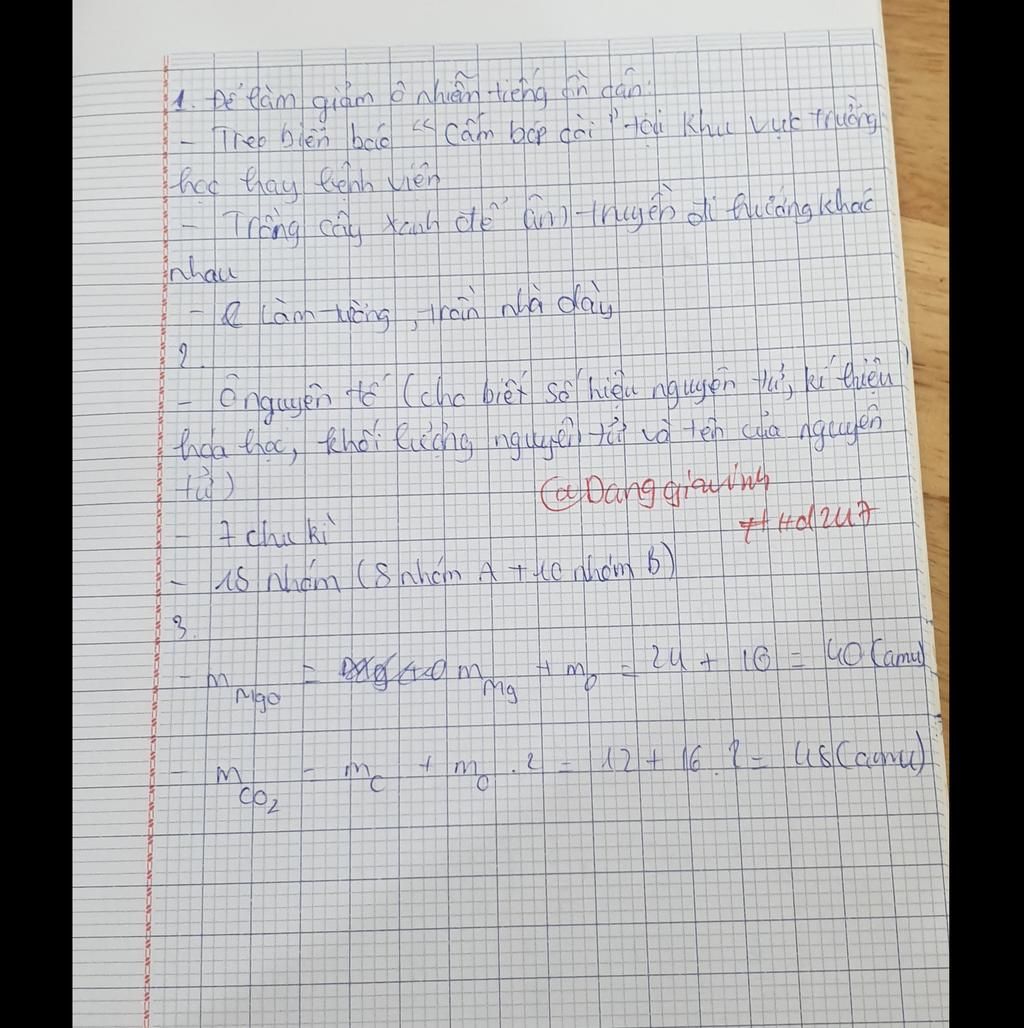 1. Để làm giảm ô nhiễm tiếng ồn cần:
- Treo biển báo "Cấm bóp còi" tại khu vực trường
học hay bệnh viện
- Trồng cây xanh để âm truyền đi hướng khác
nhau
- Làm tường, trần nhà dày
2.
- Ô nguyên tố (cho biết số hiệu nguyên tử, kí hiệu
hóa học, khối lượng nguyên tử và tên của nguyên
tử)
@Danggiavinh
#Hd247
- 7 chu kì
- 18 nhóm (8 nhóm A + 10 nhóm B)
3.
- m MgO = m Mg + m O = 24 + 16 = 40 (amu)
- m CO2 = m C + m O . 2 = 12 + 16 . 2 = 48 (amu)